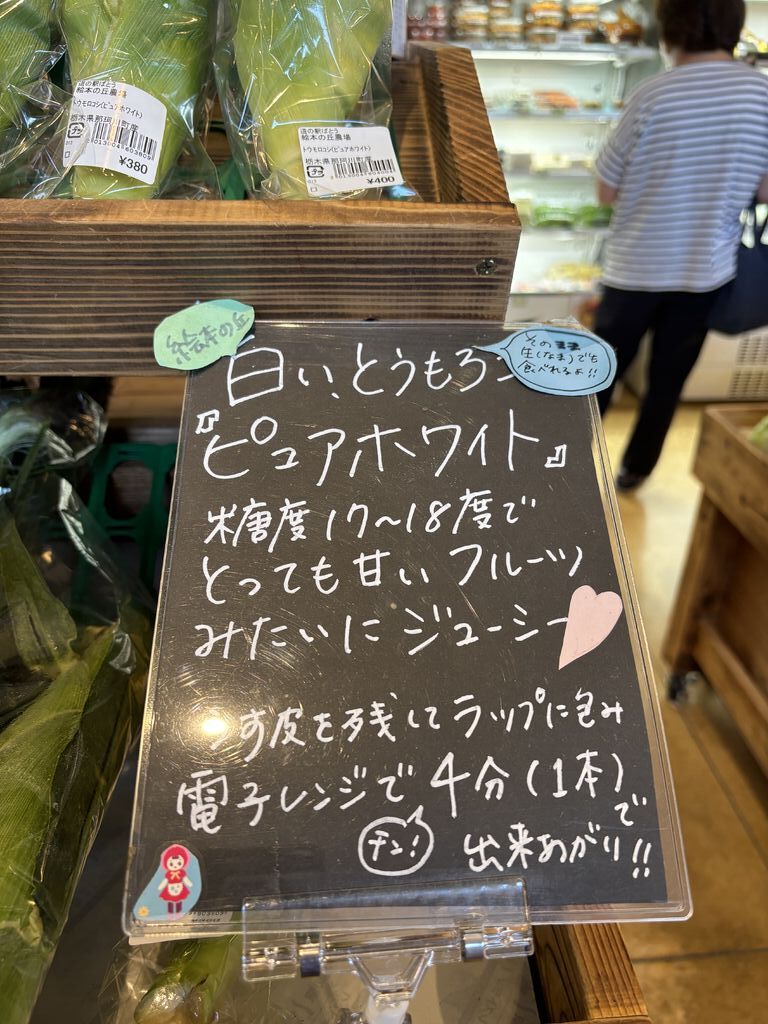 道の駅ばとう
絵本の丘農場
トウモロコシ(ピュアホワイト)
栃木県那珂川町産
¥380
道の駅ばとう
絵本の丘農場
トウモロコシ(ピュアホワイト)
栃木県那珂川町産
¥400
絵本の丘
そのまま
生(なま)でも
食べれるよ!!
白い、とうもろこ
『ピュアホワイト』
糖度17〜18度で
とっても甘い フルーツ
みたいに ジューシー
うす皮を残してラップに包み
電子レンジで 4分(1本)で
チン!
出来あがり!!